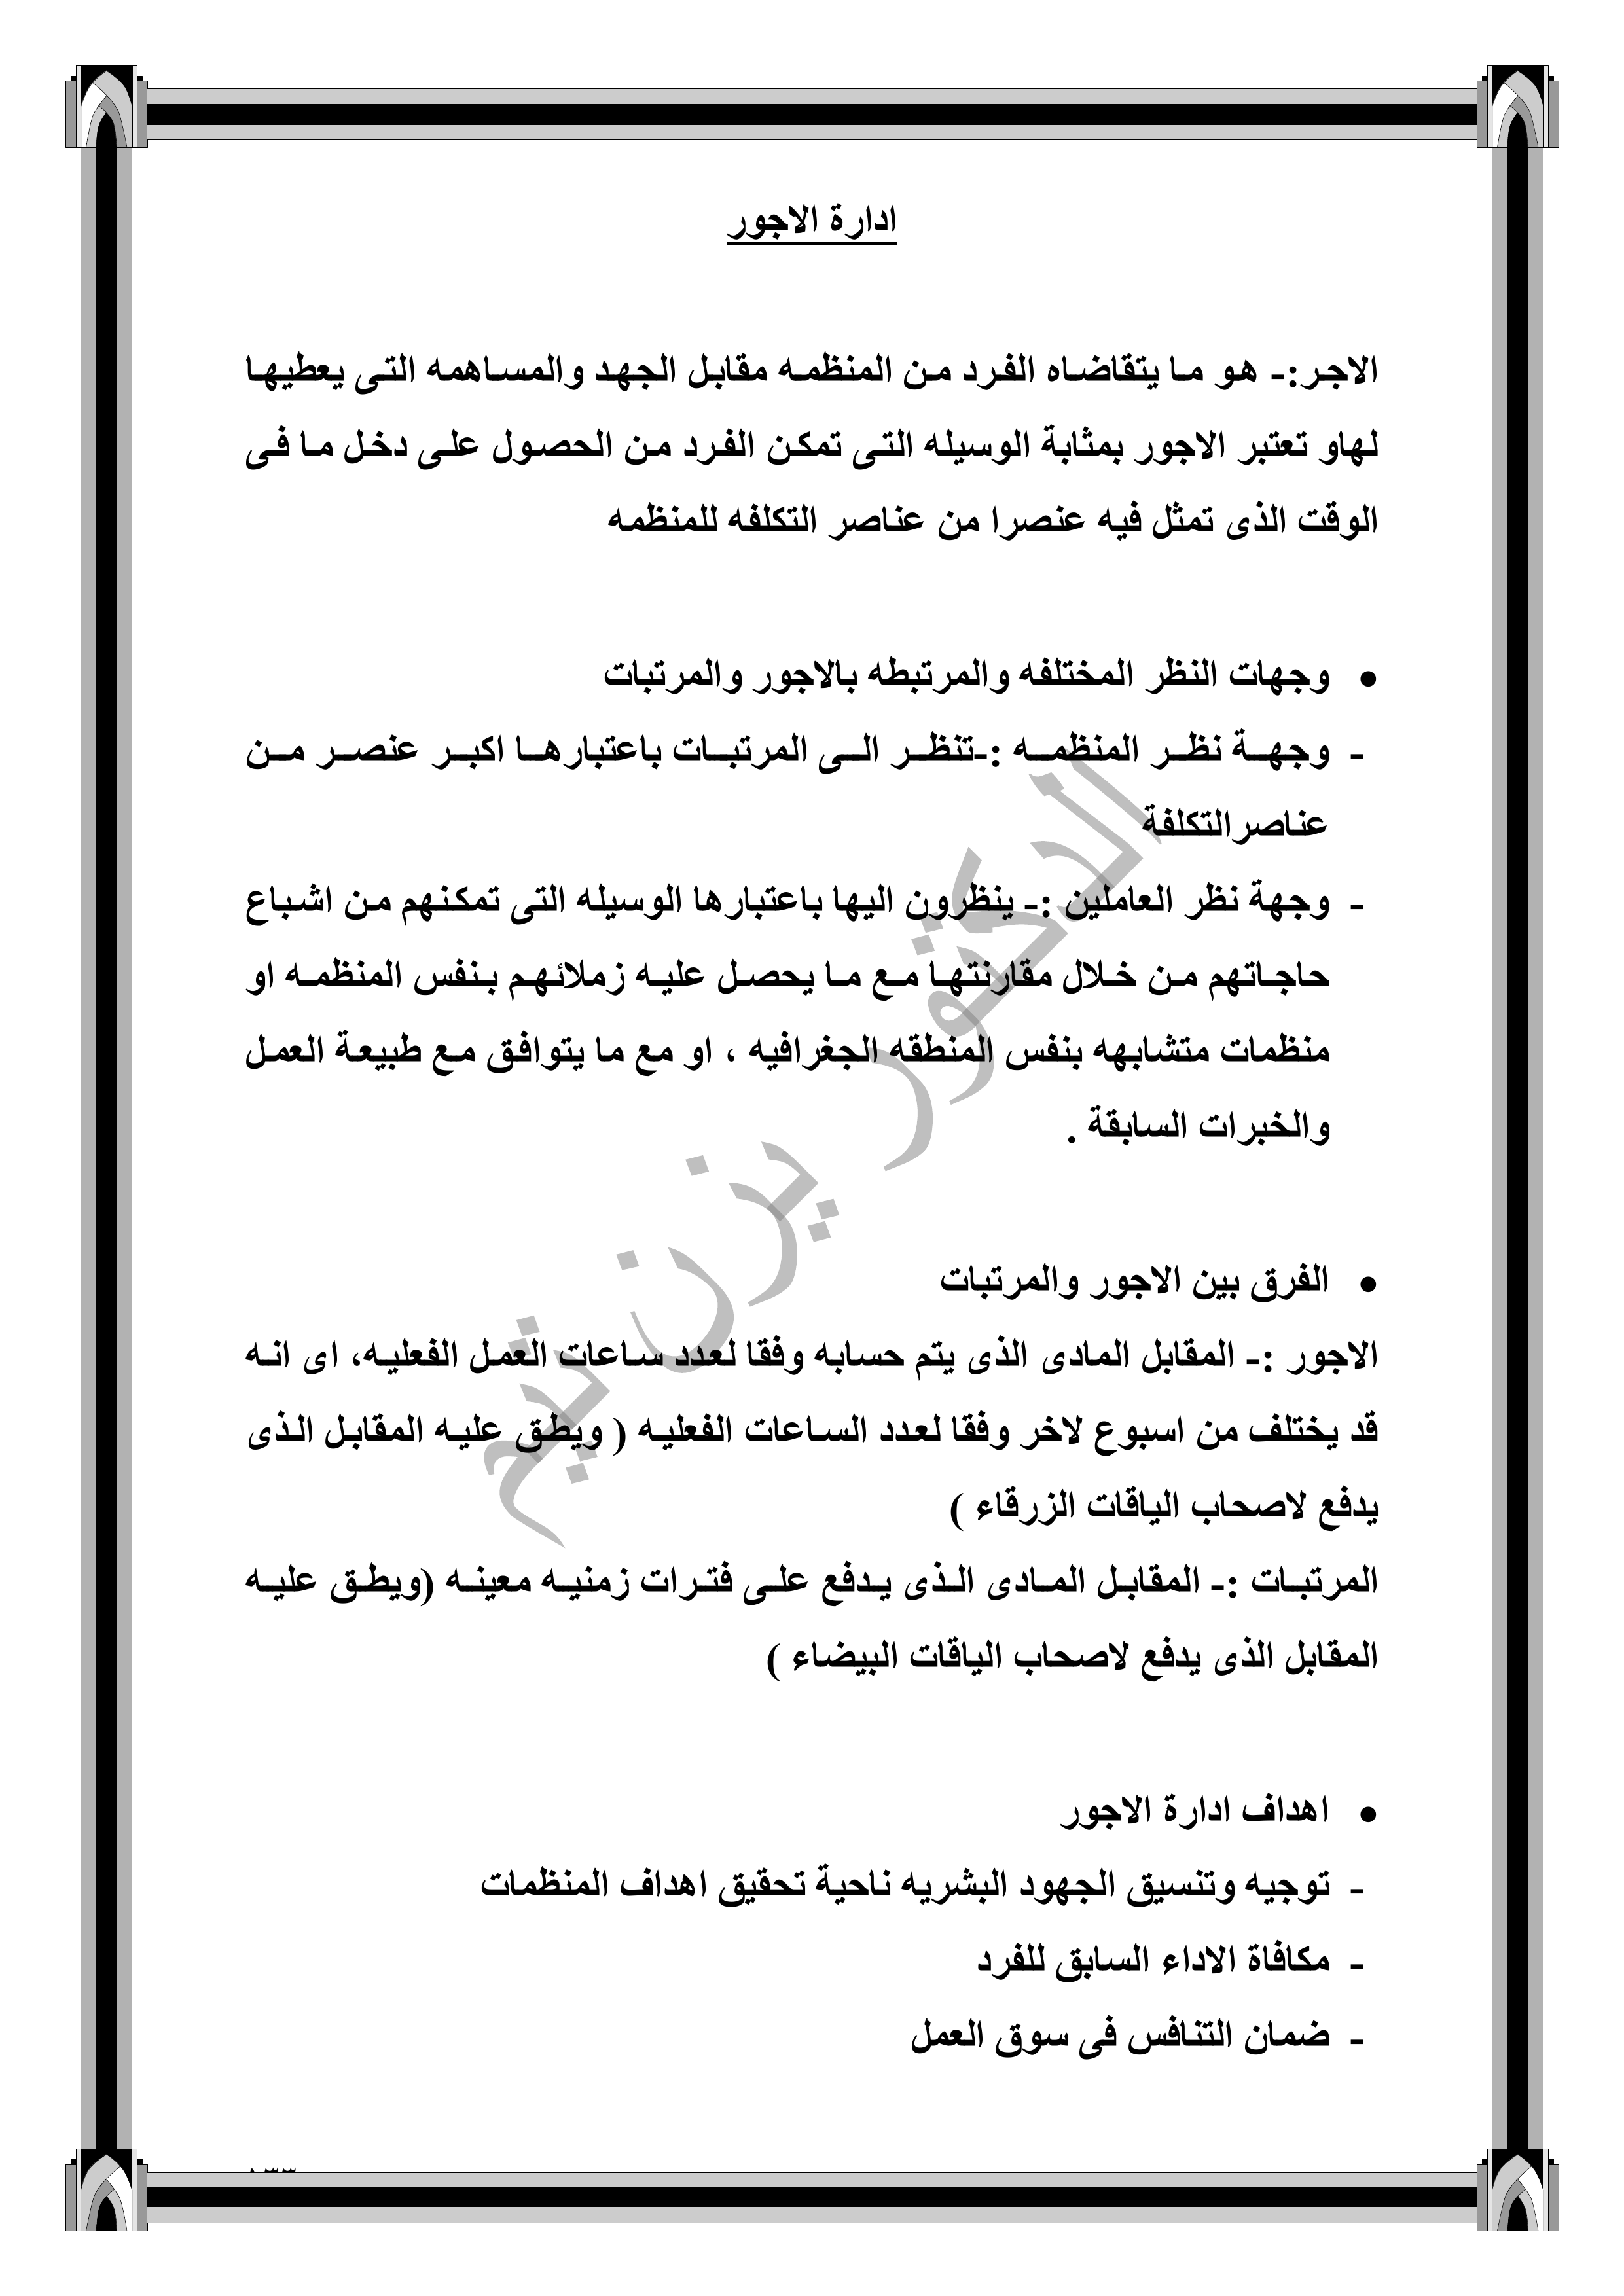 ادارة الاجور
الاجر:- هو ما يتقاضاه الفرد من المنظمه مقابل الجهد والمساهمه التى يعطيها
لهاو تعتبر الاجور بمثابة الوسيله التى تمكن الفرد من الحصول على دخل ما فى
الوقت الذى تمثل فيه عنصرا من عناصر التكلفه للمنظمه
• وجهات النظر المختلفه والمرتبطه بالاجور والمرتبات
- وجهة نظر المنظمه :-تنظر الى المرتبات باعتبارها اكبر عنصر من
عناصرالتكلفة
- وجهة نظر العاملين :- ينظرون اليها باعتبارها الوسيله التى تمكنهم من اشباع
حاجاتهم من خلال مقارنتها مع ما يحصل عليه زملائهم بنفس المنظمه او
منظمات متشابهه بنفس المنطقه الجغرافيه ، او مع ما يتوافق مع طبيعة العمل
والخبرات السابقة .
• الفرق بين الاجور والمرتبات
الاجور :- المقابل المادى الذى يتم حسابه وفقا لعدد ساعات العمل الفعليه، اى انه
قد يختلف من اسبوع لاخر وفقا لعدد الساعات الفعليه ( ويطق عليه المقابل الذى
يدفع لاصحاب الياقات الزرقاء )
المرتبات :- المقابل المادى الذى يدفع على فترات زمنيه معينه (ويطق عليه
المقابل الذى يدفع لاصحاب الياقات البيضاء )
• اهداف ادارة الاجور
- توجيه وتنسيق الجهود البشريه ناحية تحقيق اهداف المنظمات
- مكافاة الاداء السابق للفرد
- ضمان التنافس فى سوق العمل
الدكتور يزن تيم